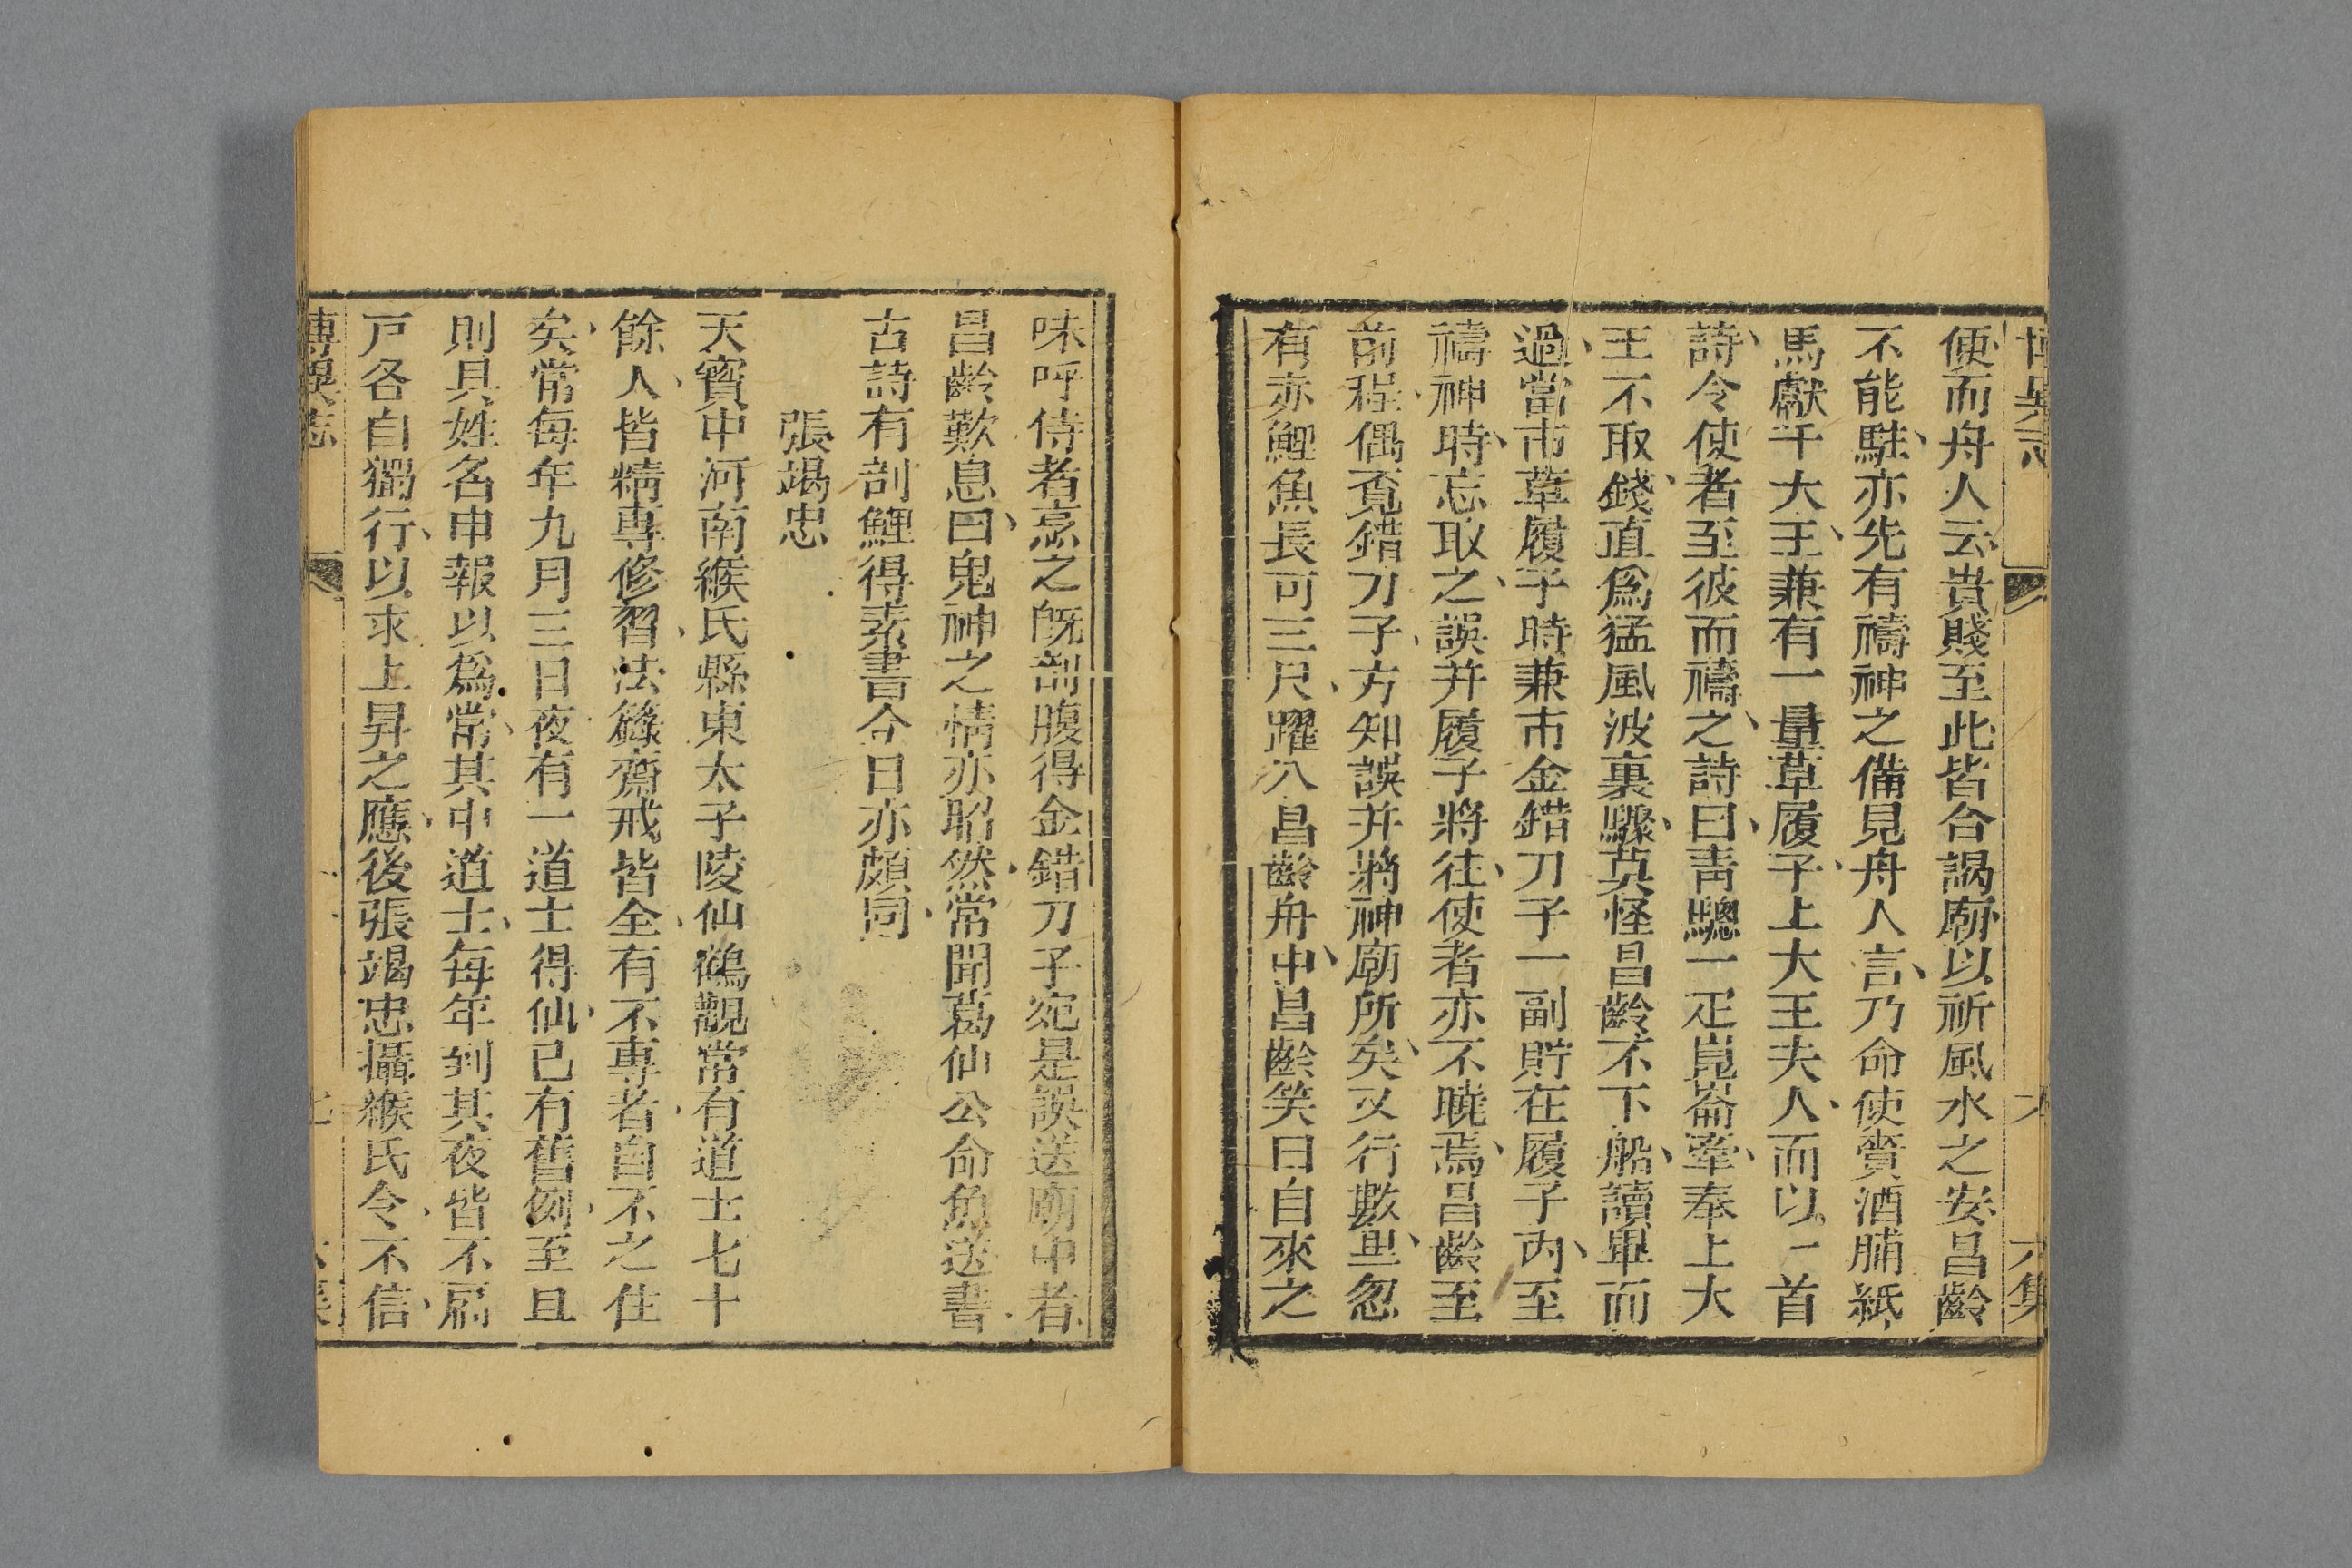 便而舟人云貴賤至此皆合謁廟以祈風水之安昌齡
不能駐亦先有禱神之備見舟人言乃命使賷酒脯紙
馬獻于大王兼有一量草履子上大王夫人而以一首
詩令使者至彼而禱之詩曰青驄一疋崑崙牽奉上大
王不取錢直爲猛風波裏驟莫怪昌齡不下船讀畢而
過當市草履子時兼市金錯刀子一副貯在履子内至
禱神時忘取之誤并履子將往使者亦不曉焉昌齡至
前程偶覓錯刀子方知誤并將神廟所矣又行數里忽
有亦鯉魚長可三尺躍入昌齡舟中昌齡笑曰自來之
味呼侍者烹之旣剖腹得金錯刀子宛是誤送廟中者
昌齡歎息曰鬼神之情亦昭然常聞葛仙公命魚送書
古詩有剖鯉得素書今日亦頗同
張竭忠
天寶中河南緱氏縣東太子陵仙鶴觀常有道士七十
餘人皆精專修習法籙齋戒皆全有不專者自不之住
矣常每年九月三日夜有一道士得仙已有舊例至旦
則具姓名申報以爲常其中道士每年到其夜皆不扃
戸各自獨行以求上昇之應後張竭忠攝緱氏令不信
博異志